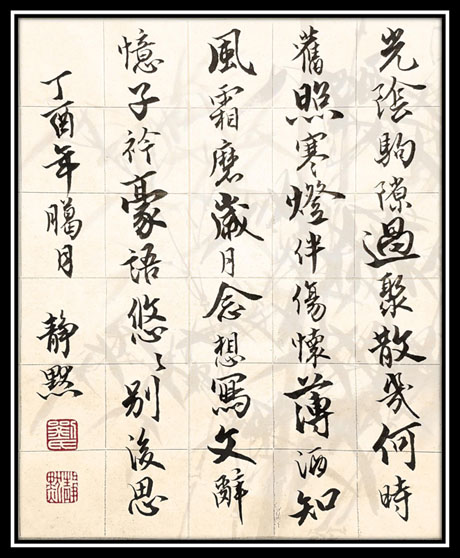 光陰駒隙過聚散幾何時
舊照寒燈伴傷懷薄酒知
風霜磨歲月念想寫文辭
憶子衿豪語悠悠別後思
丁酉年臘月 靜默